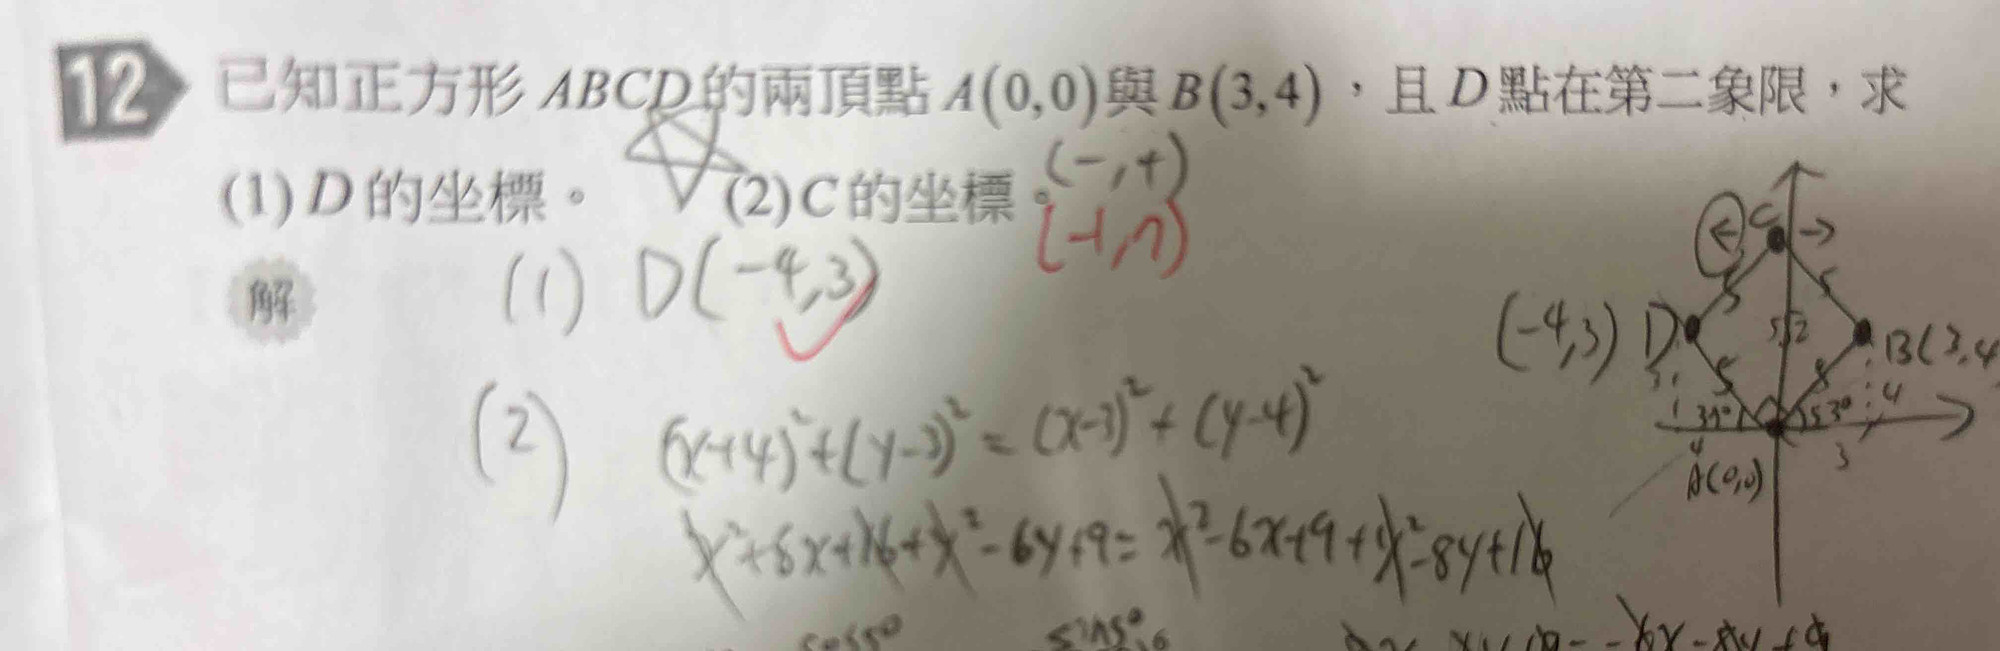 12 已知正方形 ABCD 的兩頂點 A(0,0) 與 B(3,4)，且 D 點在第二象限，求
(1) D 的坐標。 (2) C 的坐標。
(-,+)
(-1,7)
解
(1) D(-4,3)
(2) (x+4)²+(y-3)² = (x-3)²+(y-4)²
x²+8x+16+y²-6y+9= x²-6x+9+y²-8y+16
C
5
5
5√2
(-4,3) D
B(3,4
5
37°
53°
4
4
3
A(0,0)